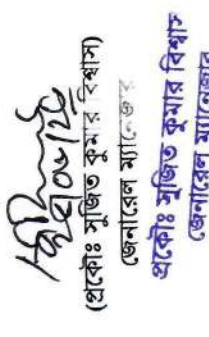 (প্রকৌঃ সুজিত কুমার বিশ্বাস)
জেনারেল ম্যানেজার
প্রকৌঃ সুজিত কুমার বিশ্বাস
জেনারেল ম্যানেজার